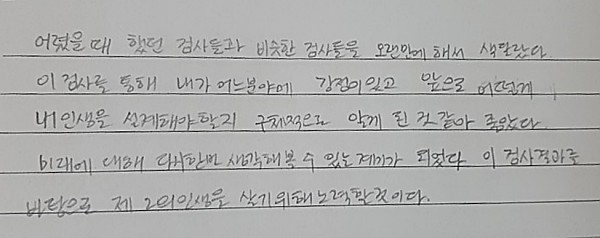 어렸을때 했던 검사들과 비슷한 검사들을 오랜만에 해서 색달랐다.
이 검사를 통해 내가 어느분야에 강점이있고 앞으로 어떻게
내인생을 설계해야할지 구체적으로 알게 된것같아 좋았다.
미래에 대해 다시한번 생각해볼 수 있는계기가 되었다 이 검사결과를
바탕으로 제 2의인생을 살기위해노력할것이다.